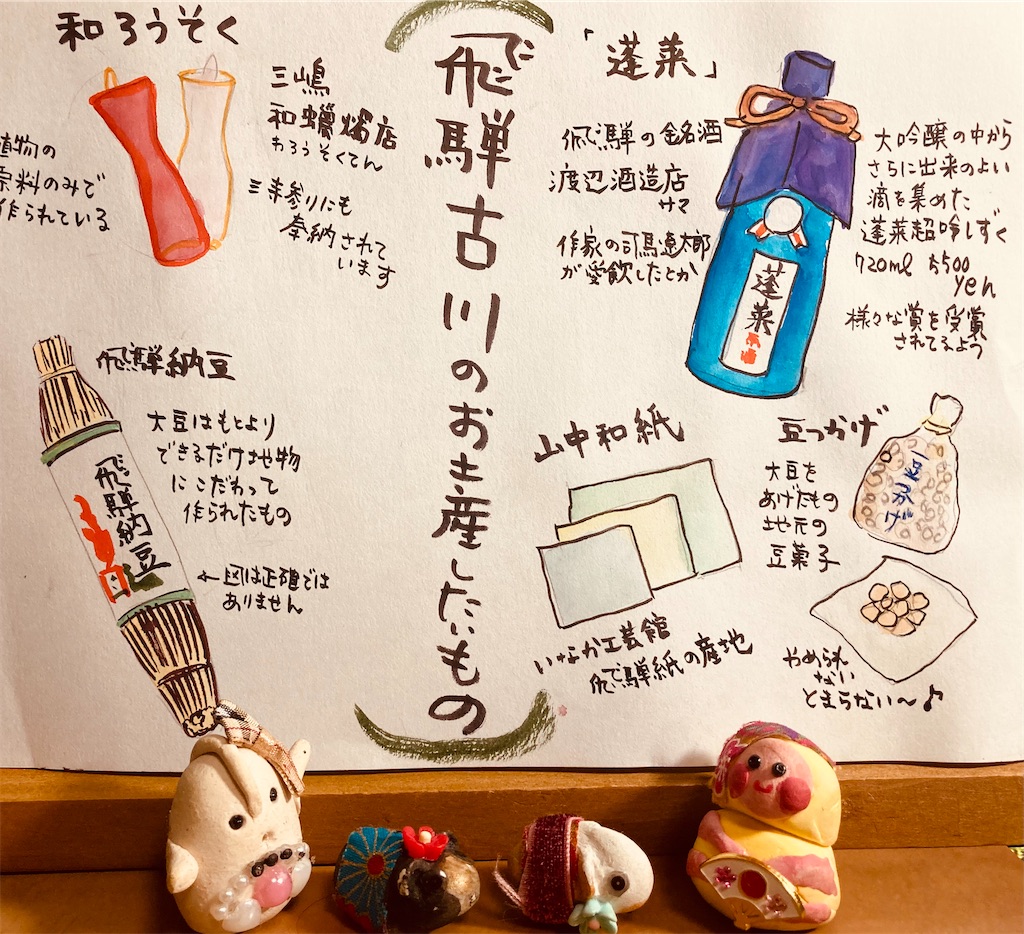 飛騨古川のお土産したいもの
和ろうそく
三嶋
和蠟燭店
わろうそくてん
植物の
原料のみで
作られている
三寺参りにも
奉納されて
います
「蓬莱」
飛騨の銘酒
渡辺酒造店
サマ
作家の司馬遼太郎
が愛飲したとか
蓬莱
大吟醸の中から
さらに出来のよい
滴を集めた
蓬莱超吟しずく
720ml 5500
yen
様々な賞を受賞
されてるよう
飛騨納豆
大豆はもとより
できるだけ地物
にこだわって
作られたもの
飛騨納豆
←図は正確では
ありません
山中和紙
いなか工芸館
飛騨紙の産地
豆つかげ
大豆を
あげたもの
地元の
豆菓子
豆つかげ
やめられ
ない
とまらない〜♪